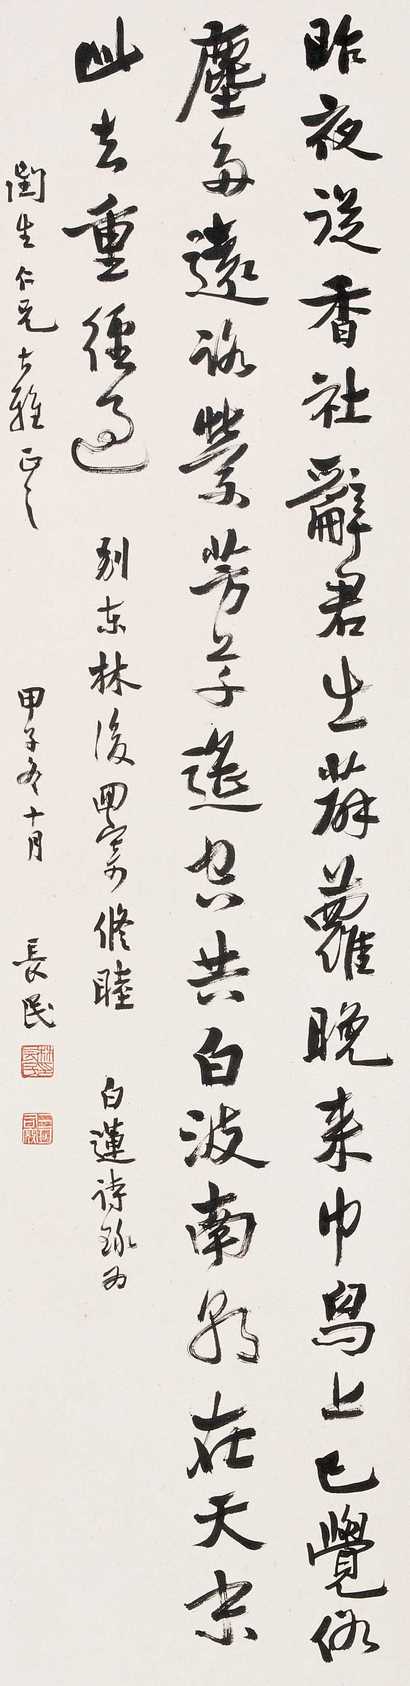 昨夜從香社辭君出薜蘿晚来巾舄上已覺俗
塵多遠路縈芳草遙空共白波南朝在天末
此去重經過 別東林後囘寄修睦 白蓮詩錄為
潤生仁兄大雅正之 甲子冬十月 長民